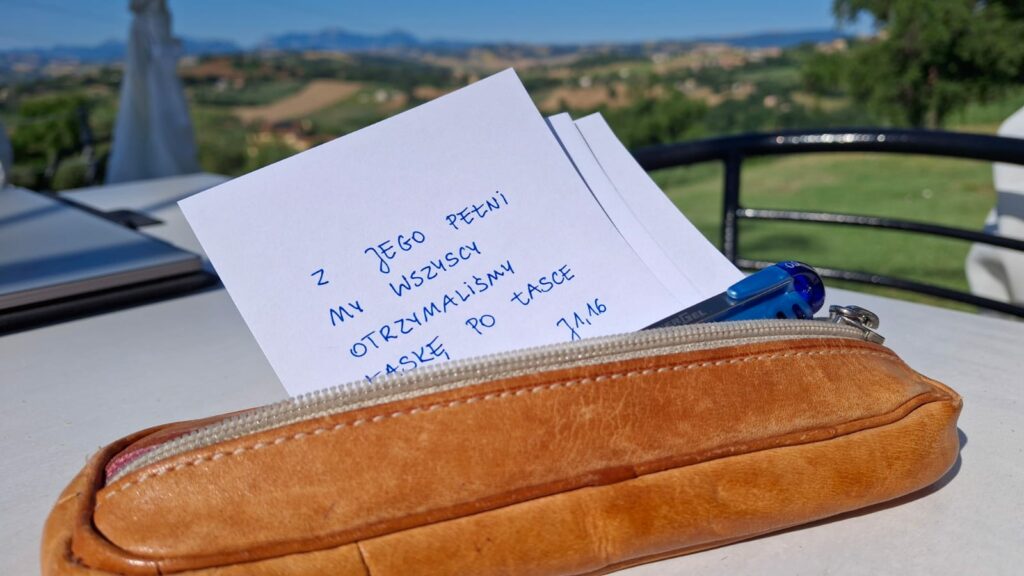 Z JEGO PEŁNI
MY WSZYSCY
OTRZYMALIŚMY
ŁASKĘ PO ŁASCE
J1,16